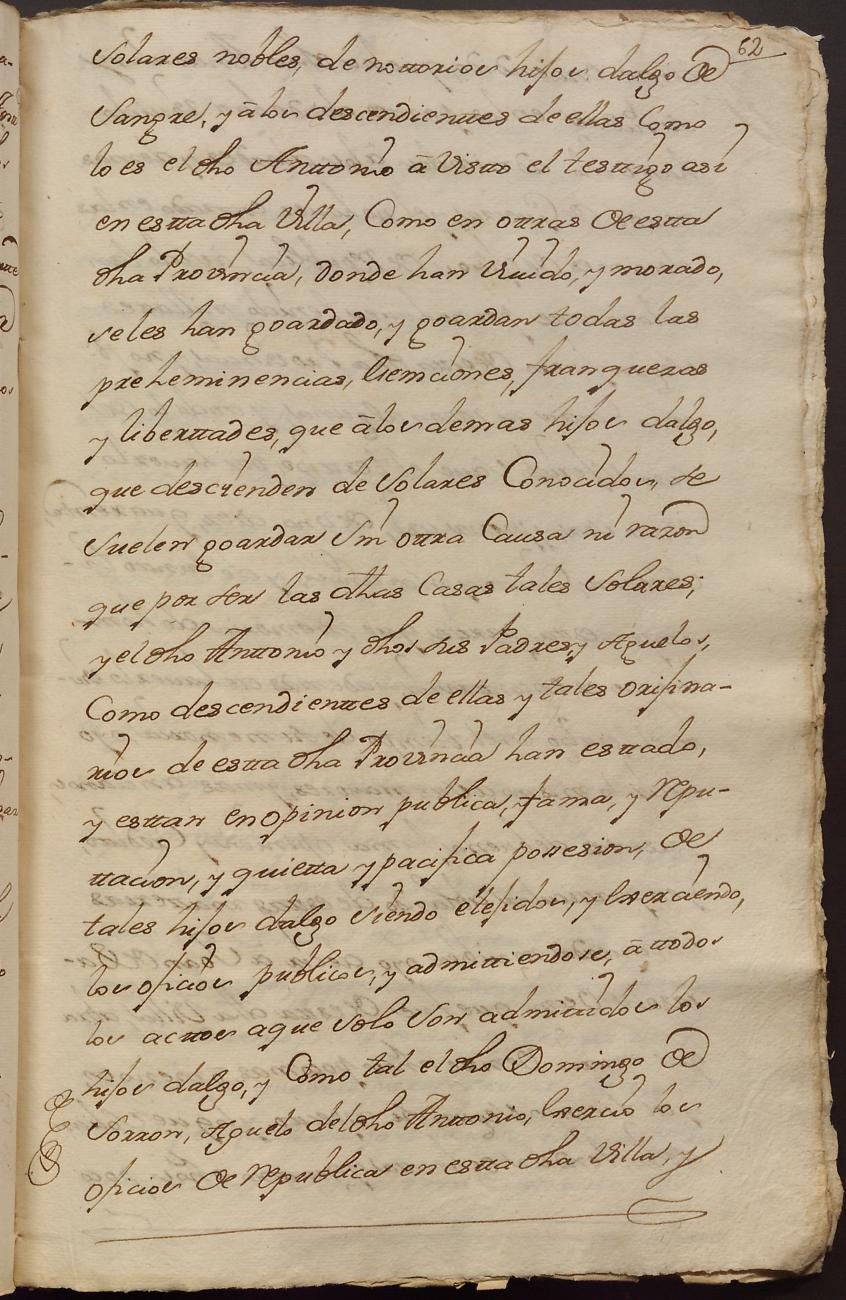 62
Solares nobles, de nottorios hijos dalgo de
Sangre, y â los descendienttes de ellas Como
lo es el dho Anttonio â Visto el testtigo asi
en estta dha Villa, Como en ottras de estta
dha Provincia, donde han Viuido, y morado,
se les han goardado, y goardan todas las
preheminencias, Exempciones, franquezas
y liberttades, que â los demas hijos dalgo,
que descienden de Solares Conocidos, se
suelen goardar sin ottra Causa ni razon
que por ser las dhas Casas tales Solares;
y el dho Anttonio y dhos sus Padres, y Aguelos,
Como descendienttes de ellas y tales orijina-
rios de estta dha Provincia han esttado,
y esttan en opinion publica, fama, y repu-
ttacion, y quietta y pacifica possesion, de
tales hijos dalgo siendo elejidos, y Exerciendo,
los oficios publicos, y admittiendose, â ttodos
los acttos a que solo son admittidos los
hijos dalgo, y Como tal el dho Domingo de
Sorron, Aguelo del dho Anttonio, Exercio los
oficios de rrepublica en estta dha Villa, y